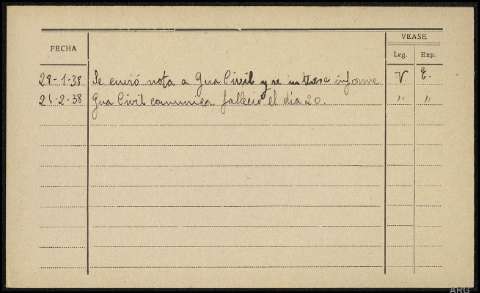 VEASE
FECHA Leg. Exp.
29-1-38 Se envió nota a Gua Civil y se interesa informe V E.
21-2-38 Gua Civil comunica falleció el día 20. " "
ARG